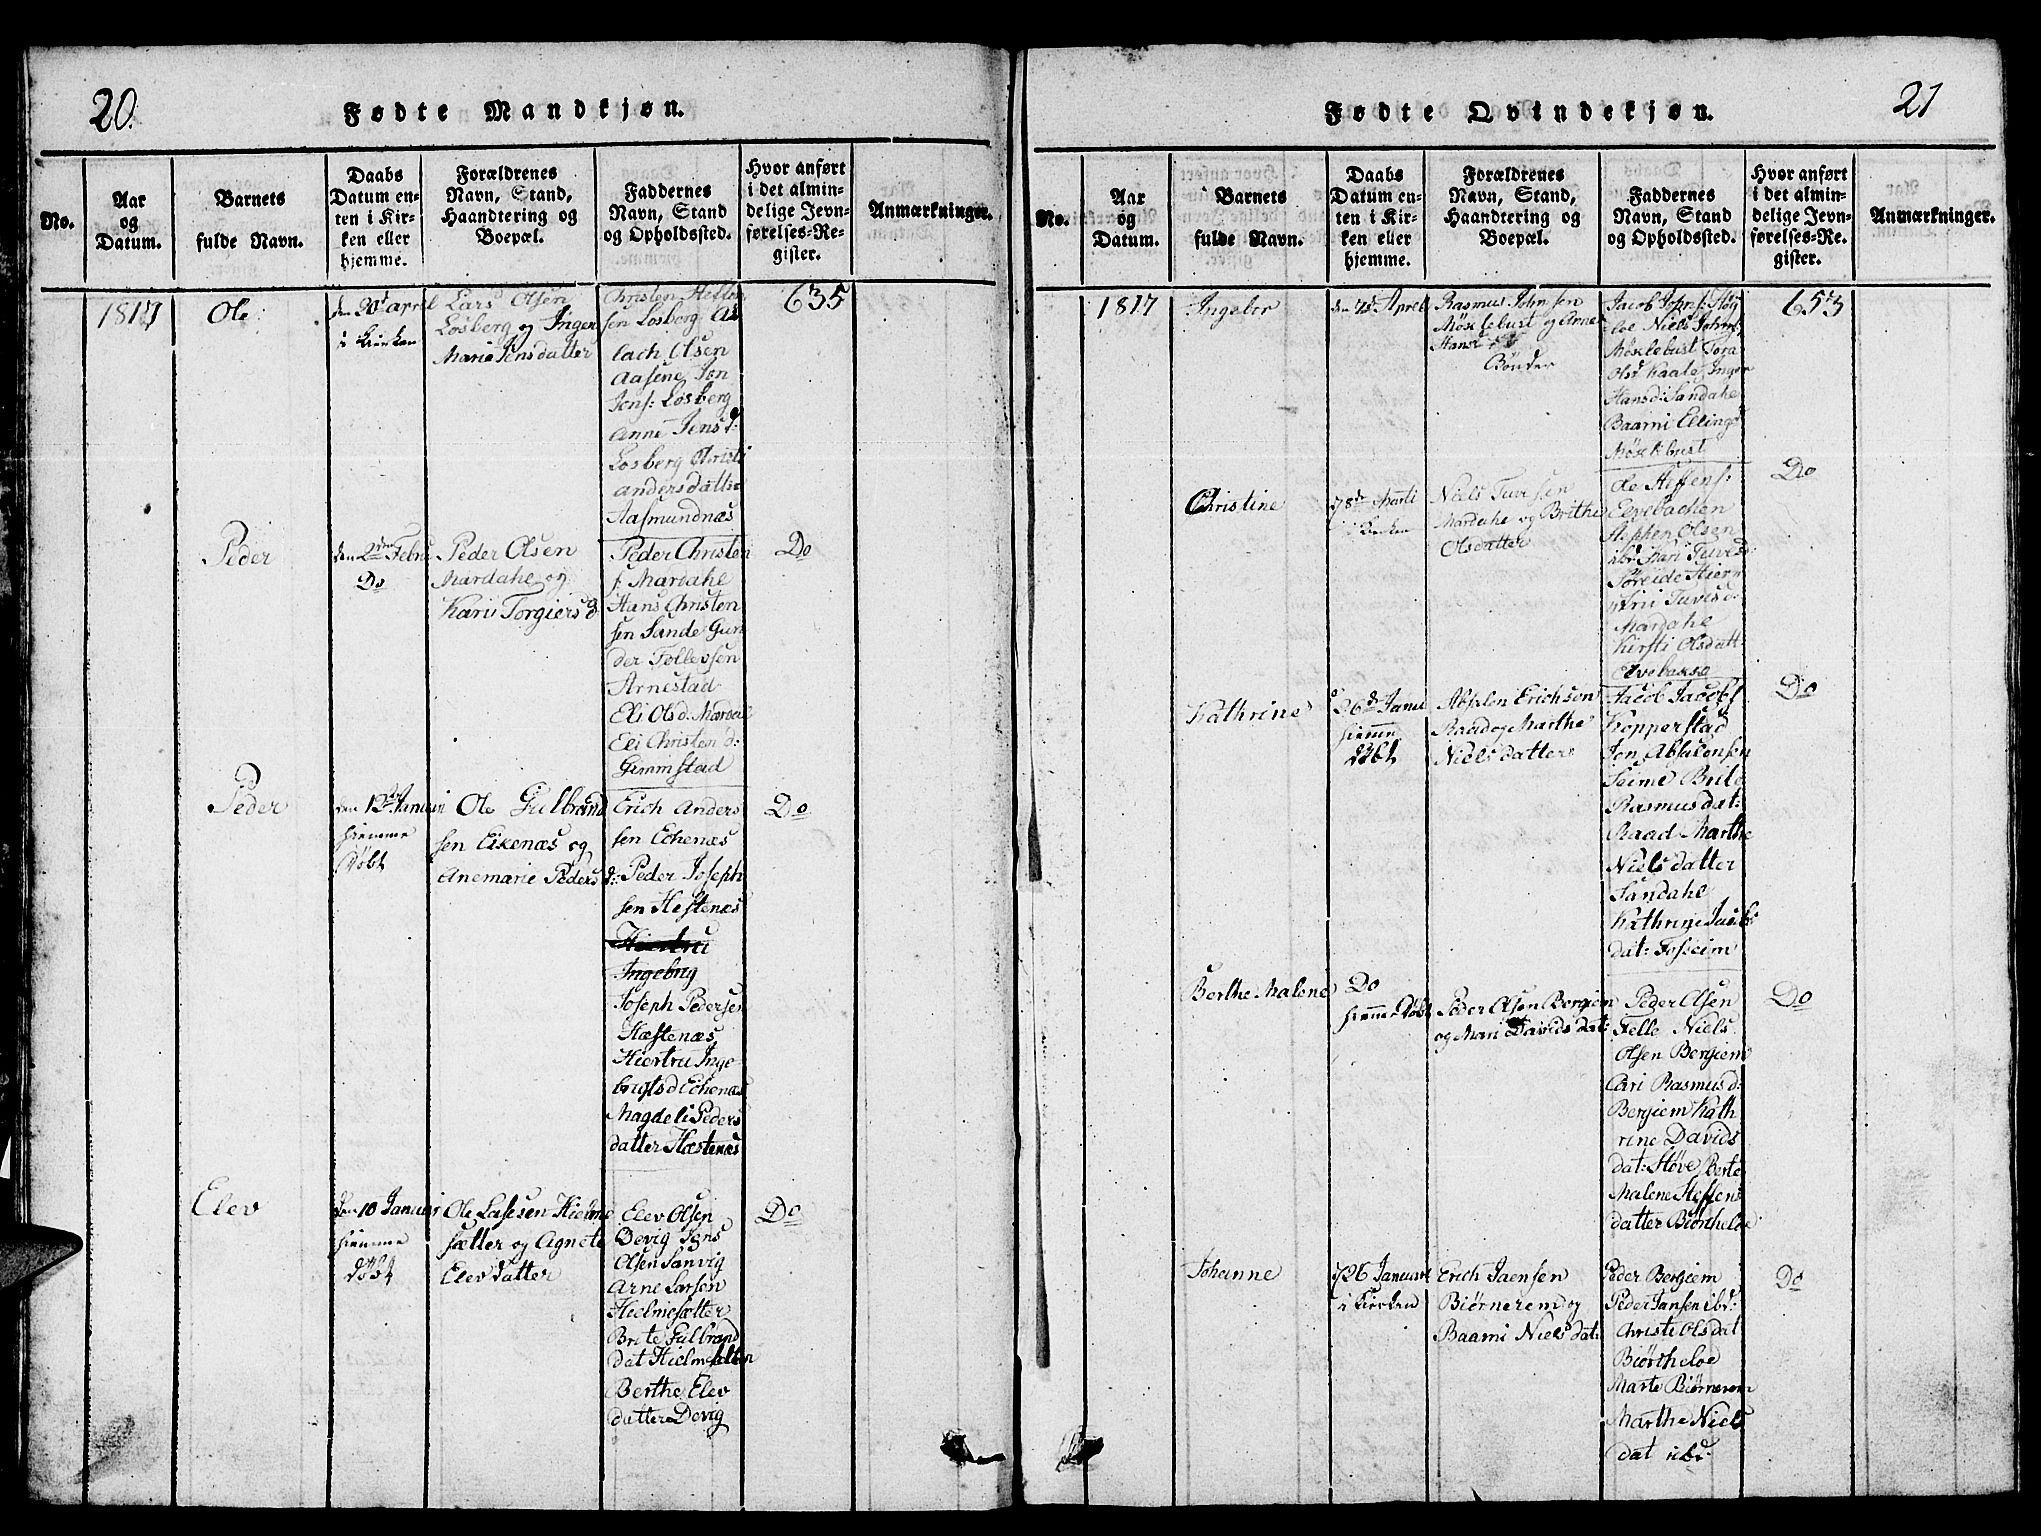 20.
Fødte Mandkjøn.
No.
Aar
og
Datum.
Barnets
fulde Navn.
Daabs
Datum en-
ten i Kir-
ken eller
hjemme.
Forældrenes
Navn, Stand,
Haandtering og
Boepæl.
Faddernes
Navn, Stand
og Opholdssted.
Hvor anført
i det almin-
delige Jevn-
førelses-Re-
gister.
Anmærkninger.
1817
Ole
den 20d april
i Kirken
Lars Olsen
Losberg og Inger
Marie Jensdatter
Christen
sen Losberg As
lach Olsen
Aasene Jon
Jens: Losberg
Anne Jens d:
Losberg Christi
andersdatter
Aasmundnæs
635
Peder
den 2den Febru
Do
Peder Olsen
Mardahe og
Kari Torgiersd
Peder Christen
s. Mardahe
Hans Christen
sen Sande Gun
der Tollevsen
Arnestad
Eli Olsd: Mardal
Eli Christen d:
Gimmstad
Do
Peder
den 12te Januari
hiemme
Døbt
Ole Gulbrand
sen Eikenæs og
Anemarie Peders d:
Erich Anders
sen Echenæs
Peder Joseph
sen Hestenæs
Hiertru
Ingebrg
Joseph Pedersen
Hæstenæs
Hiertru Inge
brigtsd Echenæs
Magdeli Peders
datter Hæstenæs
Do
Elev
den 10 Januari
hiemme
døbt
Ole Lasesen Hielme
sætter og Agnete
Elevdatter
Elev Olsen
Devig Jens
Olsen Sanvig
Arne Larsen
Hielmesætter
Brite Gulbrand
dat Hielmsetten
Berthe Elev
datter Devig
Do
21
Fødte Qvindekjøn.
No.
Aar
og
Datum.
Barnets
fulde Navn.
Daabs
Datum en-
ten i Kir-
ken eller
hjemme.
Forældrenes
Navn, Stand,
Haandtering og
Boepæl.
Faddernes
Navn, Stand
og Opholdssted.
Hvor anført
i det almin-
delige Jevn-
førelses-Re-
gister.
Anmærkninger.
1817
Ingebr
April
Rasmus Johnsen
Møklebust og Arne
Hansd
Bønder
Jacob Johns: Høy
loe Niels Johns:
Møklebust Tora
Olsd Kaale Inger
Hansd: Sandahe
Baarni Ellings
Møklebust
653
Christine
Marti
i Kirken
Niels Tuvesen
Mardahe og Brithe
Olsdatter
Ole Steffens:
Elvebachen
Stephen Olsen
ibd: Kari Tuvesd:
Søreide Hiern
Tuvesd:
Mardahe
Kirsti Olsdatt:
Elvebakke
Do
Kathrine
26d Janu
hiemme
døbt
Absalon Erichson
Raad og Marthe
Nielsdatter
Jacob Jacobs
Kopperstad
Jon Absalonsen
Seime Brite
Rasmusdat:
Raad Marthe
Nielsdatter
Sandahe
Kathrine Jacobs
dat: Fosseim
Do
Berthe Malene
Do
hiemme Døbt
Peder Olsen Bergiem
og Mari Davidsdat:
Peder Olsen
Felle Niels
Olsen Bergiem
Cari Rasmus d:
Bergiem Kath
rine Davids
dat: Støve Berte
Malene Steffens
datter Biørheloe
Do
Johanne
26 Januari
i Kierken
Erich Jaensen
Biørnerem og
Baarni Niels dat:
Peder Bergiem
Peder Jansen ibd:
Christi Olsdat
Biørtheloe
Marte Biørnerem
Marthe Niels
dat ibd:
Do